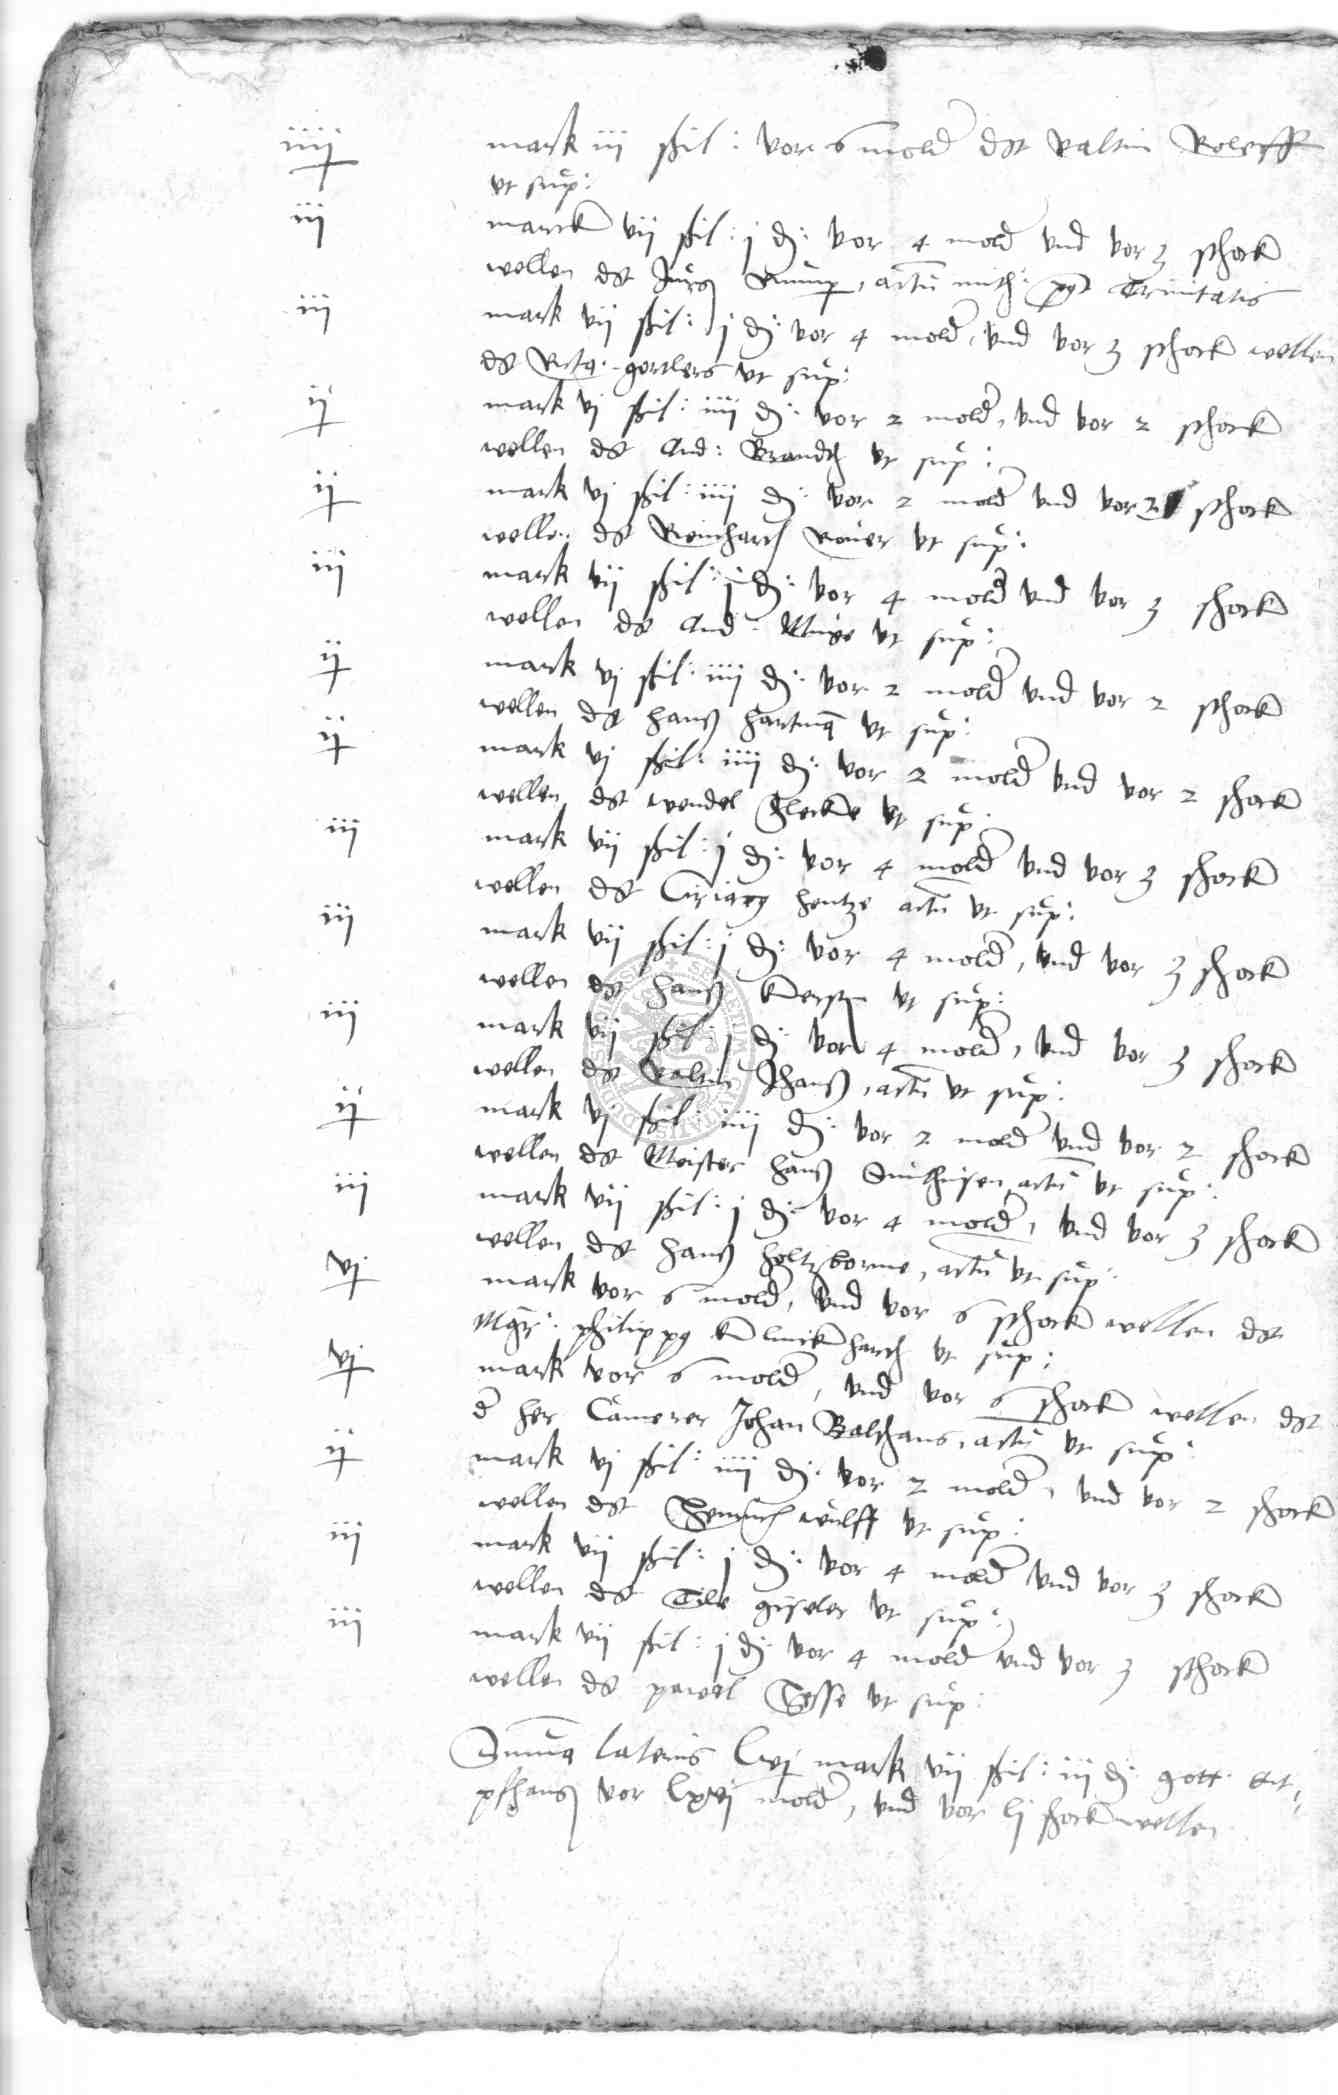 iiij mark iii ßil: vor 6 mold dt Valtin Roleff
vt sup:
iij marck vij ßil: j d: vor 4 mold vnd vor 3 schock
wellen dt Jurg, actu mith: post Trinitatis
iij mark vij ßil: j d: vor 4 mold, vnd vor 3 schock wellen
dt gortlers vt sup:
ij mark vj ßil: iiij d: vor 2 mold, vnd vor 2 schock
wellen dt And: Brandt vt sup:
ij mark vj ßil: iiij d: vor 2 mold vnd vor 2 schock
wellen dt Reinhart vt sup:
iij mark vij ßil: j d: vor 4 mold vnd vor 3 schock
wellen dt And: Kluge vt sup:
ij mark vj ßil: iiij d: vor 2 mold vnd vor 2 schock
wellen dt hanß hartma vt sup:
ij mark vj ßil: iiij d: vor 2 mold vnd vor 2 schock
wellen dt wendel vt sup:
iij mark vij ßil: j d: vor 4 mold vnd vor 3 schock
wellen dt Ciriacg hentze actu vt sup:
iij mark vij ßil: j d: vor 4 mold, vnd vor 3 schock
wellen dt hanß kersten vt sup:
iij mark vij ßil: j d: vor 4 mold, vnd vor 3 schock
wellen dt Valtin Jhanß, actu vt sup:
ij mark vj ßil: iiij d: vor 2 mold vnd vor 2 schock
wellen dt Meister hanß actu vt sup:
iij mark vij ßil: j d: vor 4 mold, vnd vor 3 schock
wellen dt hanß holtzborne, actu vt sup:
vj mark vor 6 mold, vnd vor 6 schock wellen dt
Mgr: philippg klinkhart vt sup:
vj mark vor 6 mold, vnd vor 6 schock wellen dt
d her Camerer Johan Balthans, actu vt sup:
ij mark vj ßil: iiij d: vor 2 mold, vnd vor 2 schock
wellen dt Henrich wulff vt sup:
iij mark vij ßil: j d: vor 4 mold vnd vor 3 schock
wellen dt Tile giseler vt sup:
iij mark vij ßil: j d: vor 4 mold vnd vor 3 schock
wellen dt pawel Tesse vt sup:
Suma lateris lvj mark vij ßil: iij d: gott
vor lxvj mold, vnd vor lj schock wellen